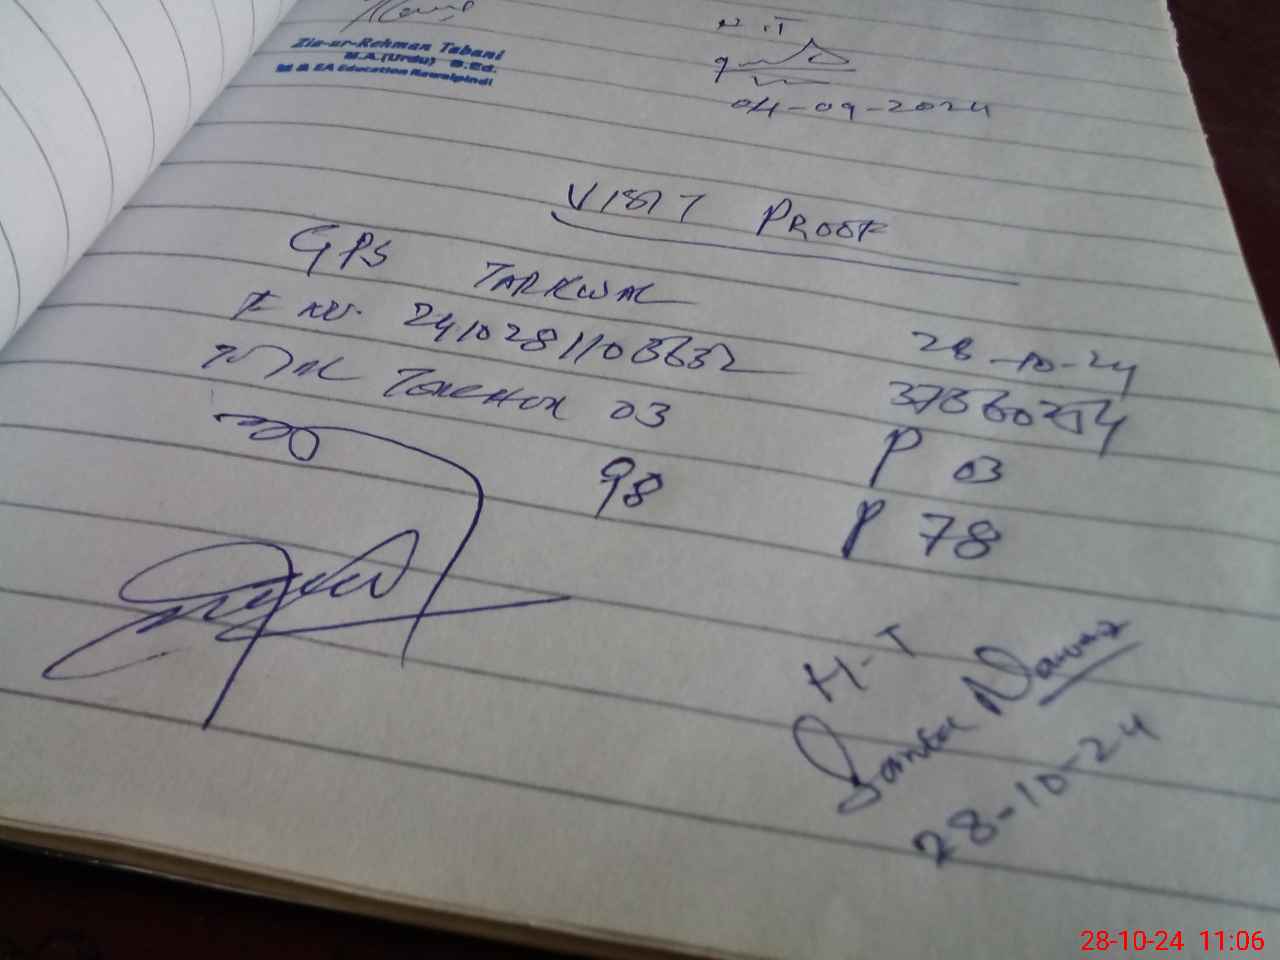 Zia-ur-Rehman Tabani
M.A.(Urdu) B.Ed.
M & EA Education Rawalpindi
H.T
04-09-2024
VISIT PROOF
GPS TARKWAL 28-10-24
E No. 2410281103632 37360254
Total Teacher 03 P 03
98 P 78
H-T
Nawaz
28-10-24
28-10-24 11:06